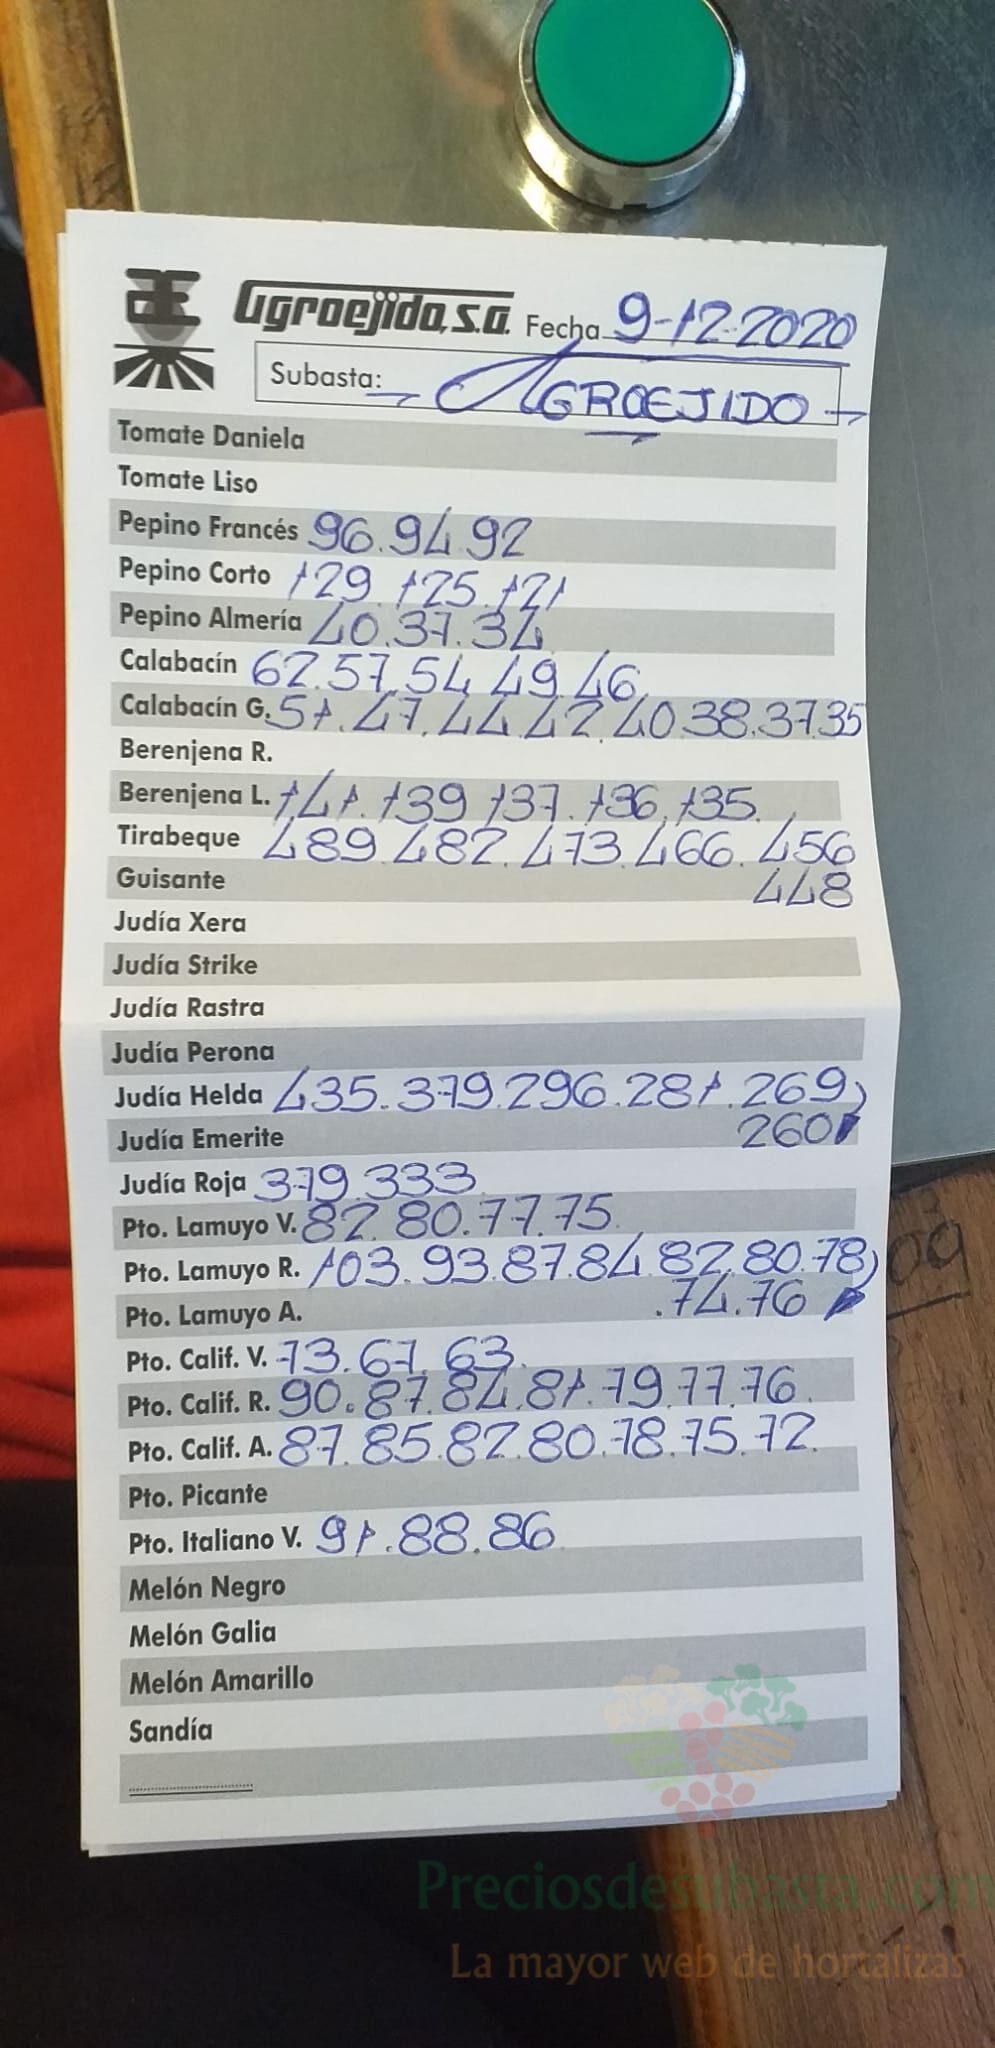 Agroejido, S.A. Fecha 9-12-2020
Subasta: AGROEJIDO
Tomate Daniela
Tomate Liso
Pepino Francés 96.94.92
Pepino Corto 129.125.121
Pepino Almería 40.37.34
Calabacín 62.57.54.49.46
Calabacín G. 51.47.44.42.40.38.37.35
Berenjena R.
Berenjena L. 141.139.137.136.135.
Tirabeque 489.482.473.466.456
448
Guisante
Judía Xera
Judía Strike
Judía Rastra
Judía Perona
Judía Helda 435.379.296.281.269
260
Judía Emerite
Judía Roja 379.333
Pto. Lamuyo V. 82.80.77.75.
Pto. Lamuyo R. 103.93.87.84.82.80.78
.74.76
Pto. Lamuyo A.
Pto. Calif. V. 73.67.63.
Pto. Calif. R. 90.87.84.81.79.77.76.
Pto. Calif. A. 87.85.82.80.78.75.72.
Pto. Picante
Pto. Italiano V. 91.88.86
Melón Negro
Melón Galia
Melón Amarillo
Sandía
Preciosdesubasta.com
La mayor web de hortalizas